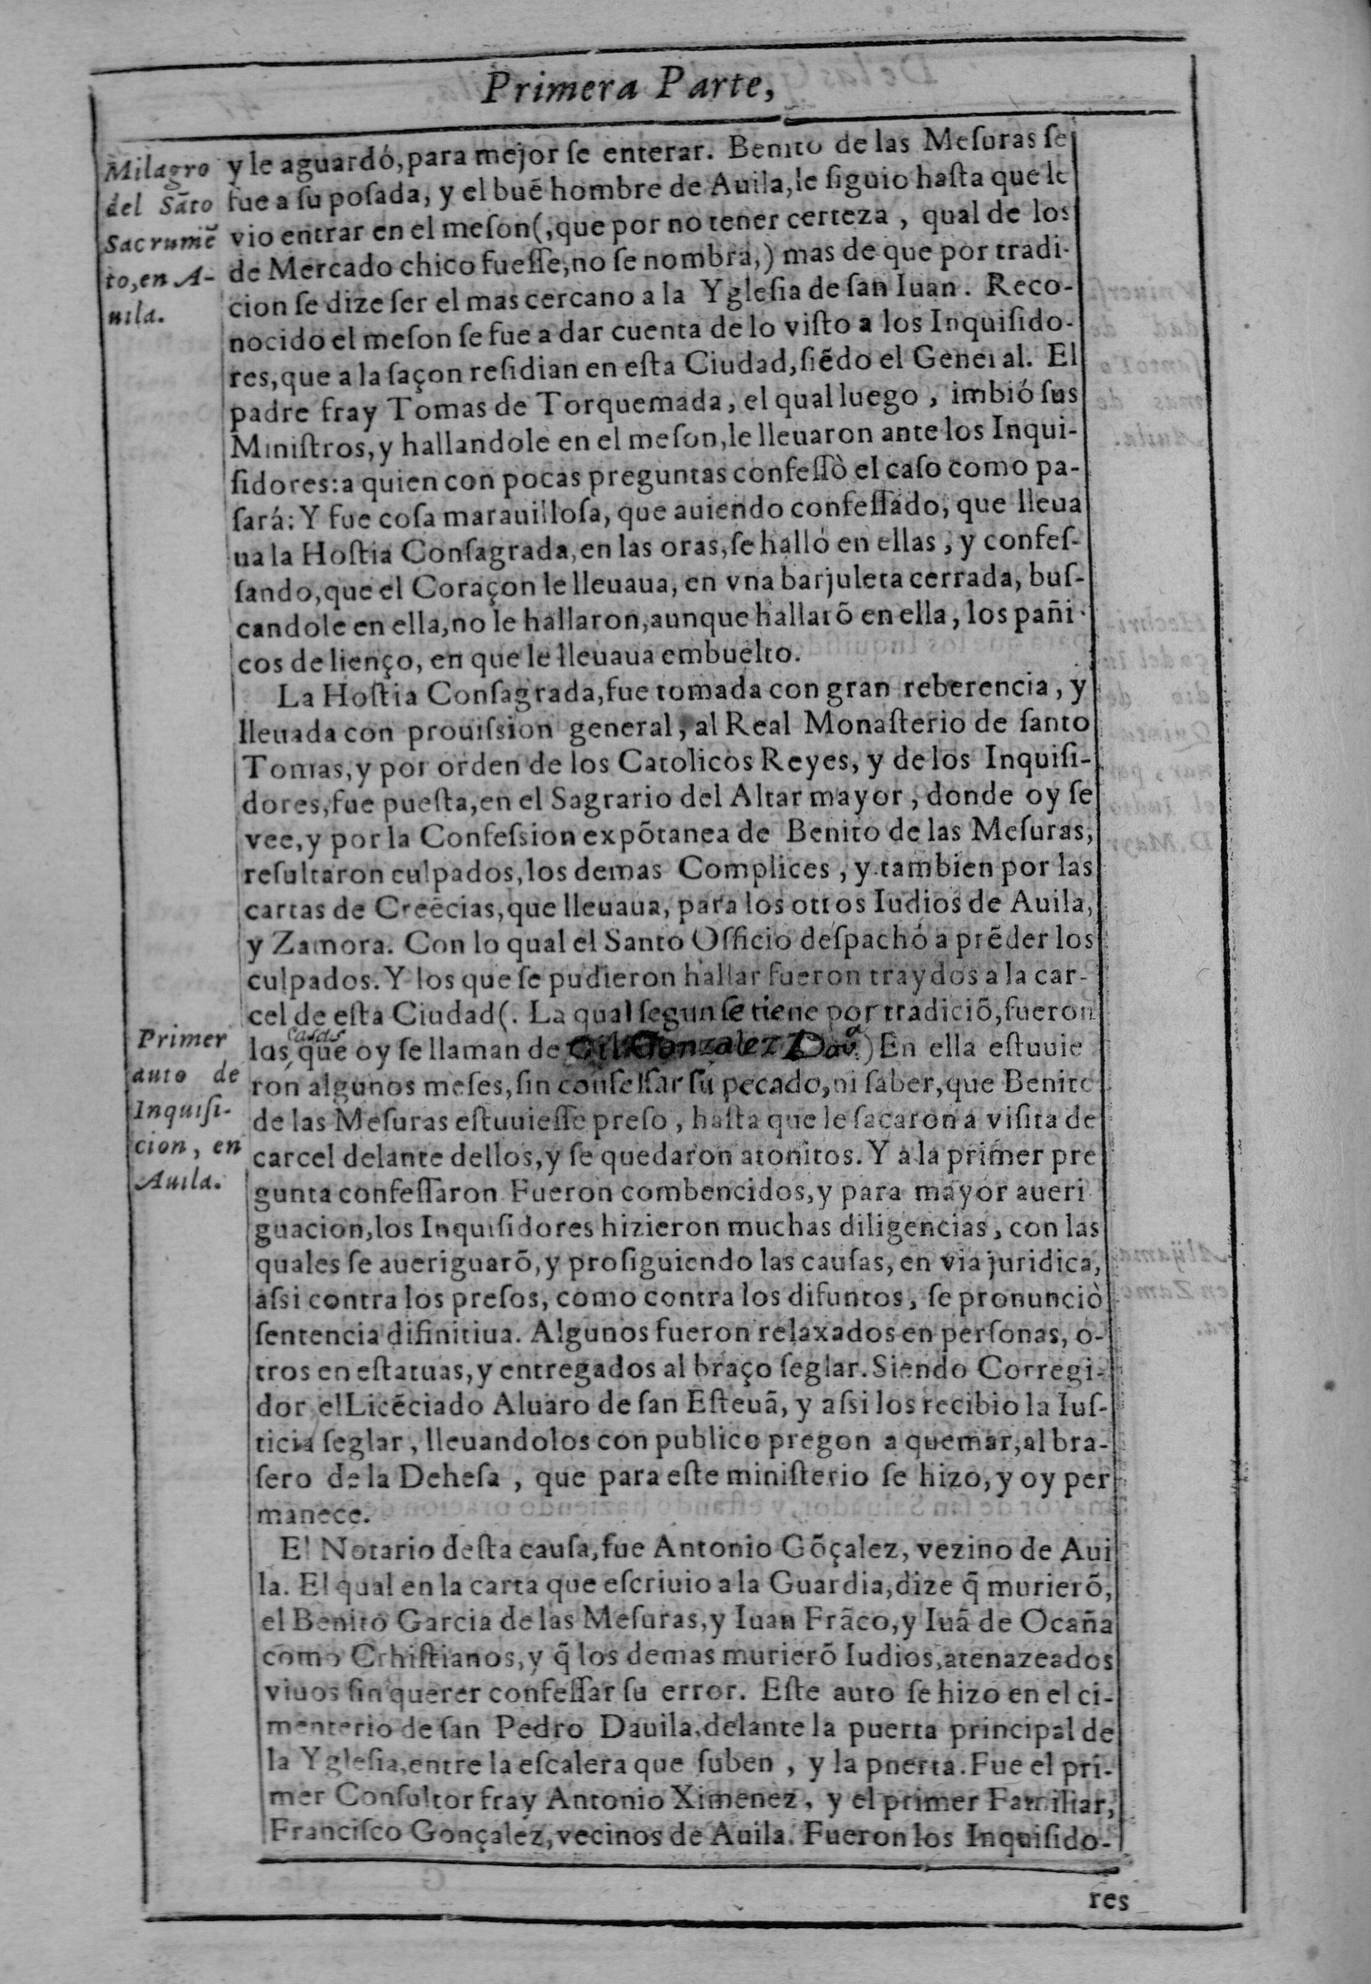 Primera Parte,
Milagro
del Sãto
Sacrumẽ
to, en A-
uila.
y le aguardó, para mejor ſe enterar. Benito de las Meſuras ſe
fue a ſu poſada, y el buẽ hombre de Auila, le ſiguio haſta que le
vio entrar en el meſon (, que por no tener certeza, qual de los
de Mercado chico fueſſe, no ſe nombra,) mas de que por tradi-
cion ſe dize ſer el mas cercano a la Ygleſia de ſan Iuan. Reco-
nocido el meſon ſe fue a dar cuenta de lo viſto a los Inquiſido-
res, que a la ſaçon reſidian en eſta Ciudad, ſiẽdo el General. El
padre fray Tomas de Torquemada, el qual luego, imbió ſus
Miniſtros, y hallandole en el meſon, le lleuaron ante los Inqui-
ſidores: a quien con pocas preguntas confeſſò el caſo como pa-
ſará: Y fue coſa marauilloſa, que auiendo confeſſado, que lleua
ua la Hoſtia Conſagrada, en las oras, ſe halló en ellas, y confeſ-
ſando, que el Coraçon le lleuaua, en vna barjuleta cerrada, buſ-
candole en ella, no le hallaron, aunque hallarõ en ella, los pañi-
cos de lienço, en que le lleuaua embuelto.
La Hoſtia Conſagrada, fue tomada con gran reberencia, y
lleuada con prouiſsion general, al Real Monaſterio de ſanto
Tomas, y por orden de los Catolicos Reyes, y de los Inquiſi-
dores, fue pueſta, en el Sagrario del Altar mayor, donde oy ſe
vee, y por la Confeſsion expõtanea de Benito de las Meſuras,
reſultaron culpados, los demas Complices, y tambien por las
cartas de Creẽcias, que lleuaua, para los otros Iudios de Auila,
y Zamora. Con lo qual el Santo Officio deſpachó a prẽder los
culpados. Y los que ſe pudieron hallar fueron traydos a la car-
cel de eſta Ciudad (. La qual ſegun ſe tiene por tradiciõ, fueron
Primer
auto de
Inquiſi-
cion, en
Auila.
casas
las, que oy ſe llaman de Gil Gonzalez Dauª.) En ella eſtuuie
ron algunos meſes, ſin confeſſar ſu pecado, ni ſaber, que Benito
de las Meſuras eſtuuieſſe preſo, haſta que le ſacaron a viſita de
carcel delante dellos, y ſe quedaron atonitos. Y a la primer pre
gunta confeſſaron. Fueron combencidos, y para mayor aueri
guacion, los Inquiſidores hizieron muchas diligencias, con las
quales ſe aueriguarõ, y proſiguiendo las cauſas, en via juridica,
aſsi contra los preſos, como contra los difuntos, ſe pronunciò
ſentencia difinitiua. Algunos fueron relaxados en perſonas, o-
tros en eſtatuas, y entregados al braço ſeglar. Siendo Corregi-
dor el Licẽciado Aluaro de ſan Eſteuã, y aſsi los recibio la Iuſ-
ticia ſeglar, lleuandolos con publico pregon a quemar, al bra-
ſero de la Deheſa, que para eſte miniſterio ſe hizo, y oy per
manece.
El Notario deſta cauſa, fue Antonio Gõçalez, vezino de Aui
la. El qual en la carta que eſcriuio a la Guardia, dize q̃ murierõ,
el Benito Garcia de las Meſuras, y Iuan Frãco, y Iuã de Ocaña
como Crhiſtianos, y q̃ los demas murierõ Iudios, atenazeados
viuos ſin querer confeſſar ſu error. Eſte auto ſe hizo en el ci-
menterio de ſan Pedro Dauila, delante la puerta principal de
la Ygleſia, entre la eſcalera que ſuben, y la pnerta. Fue el pri-
mer Conſultor fray Antonio Ximenez, y el primer Familiar,
Franciſco Gonçalez, vecinos de Auila. Fueron los Inquiſido-
res